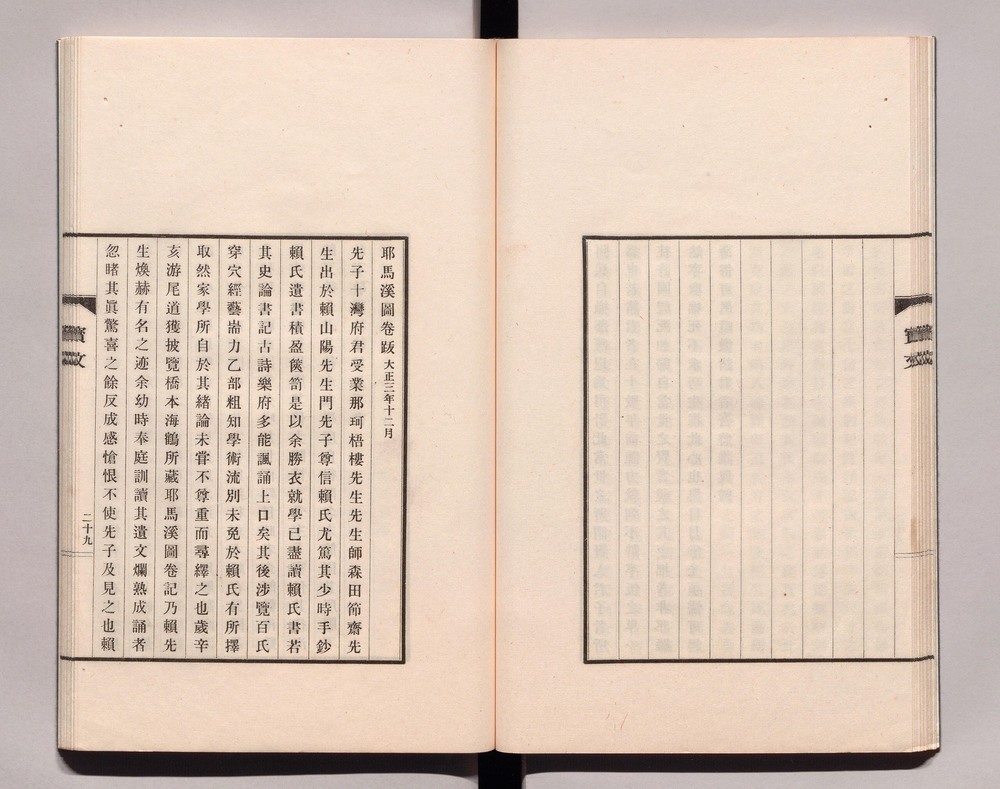 耶馬溪圖卷跋 大正三年十二月
先子十灣府君受業那珂梧樓先生先生師森田節齋先
生出於賴山陽先生門先子尊信賴氏尤篤其少時手鈔
賴氏遺書積盈篋笥是以余勝衣就學已盡讀賴氏書若
其史論書記古詩樂府多能諷誦上口矣其後涉覽百氏
穿穴經藝嵜力乙部粗知學術流別未免於賴氏有所擇
取然家學所自於其緒論未甞不尊重而尋繹之也歲辛
亥游尾道獲披覽橋本海鶴所藏耶馬溪圖卷記乃賴先
生煥赫有名之迹余幼時奉庭訓讀其遺文爛熟成誦者
忽睹其眞驚喜之餘反成感愴恨不使先子及見之也賴
二十九